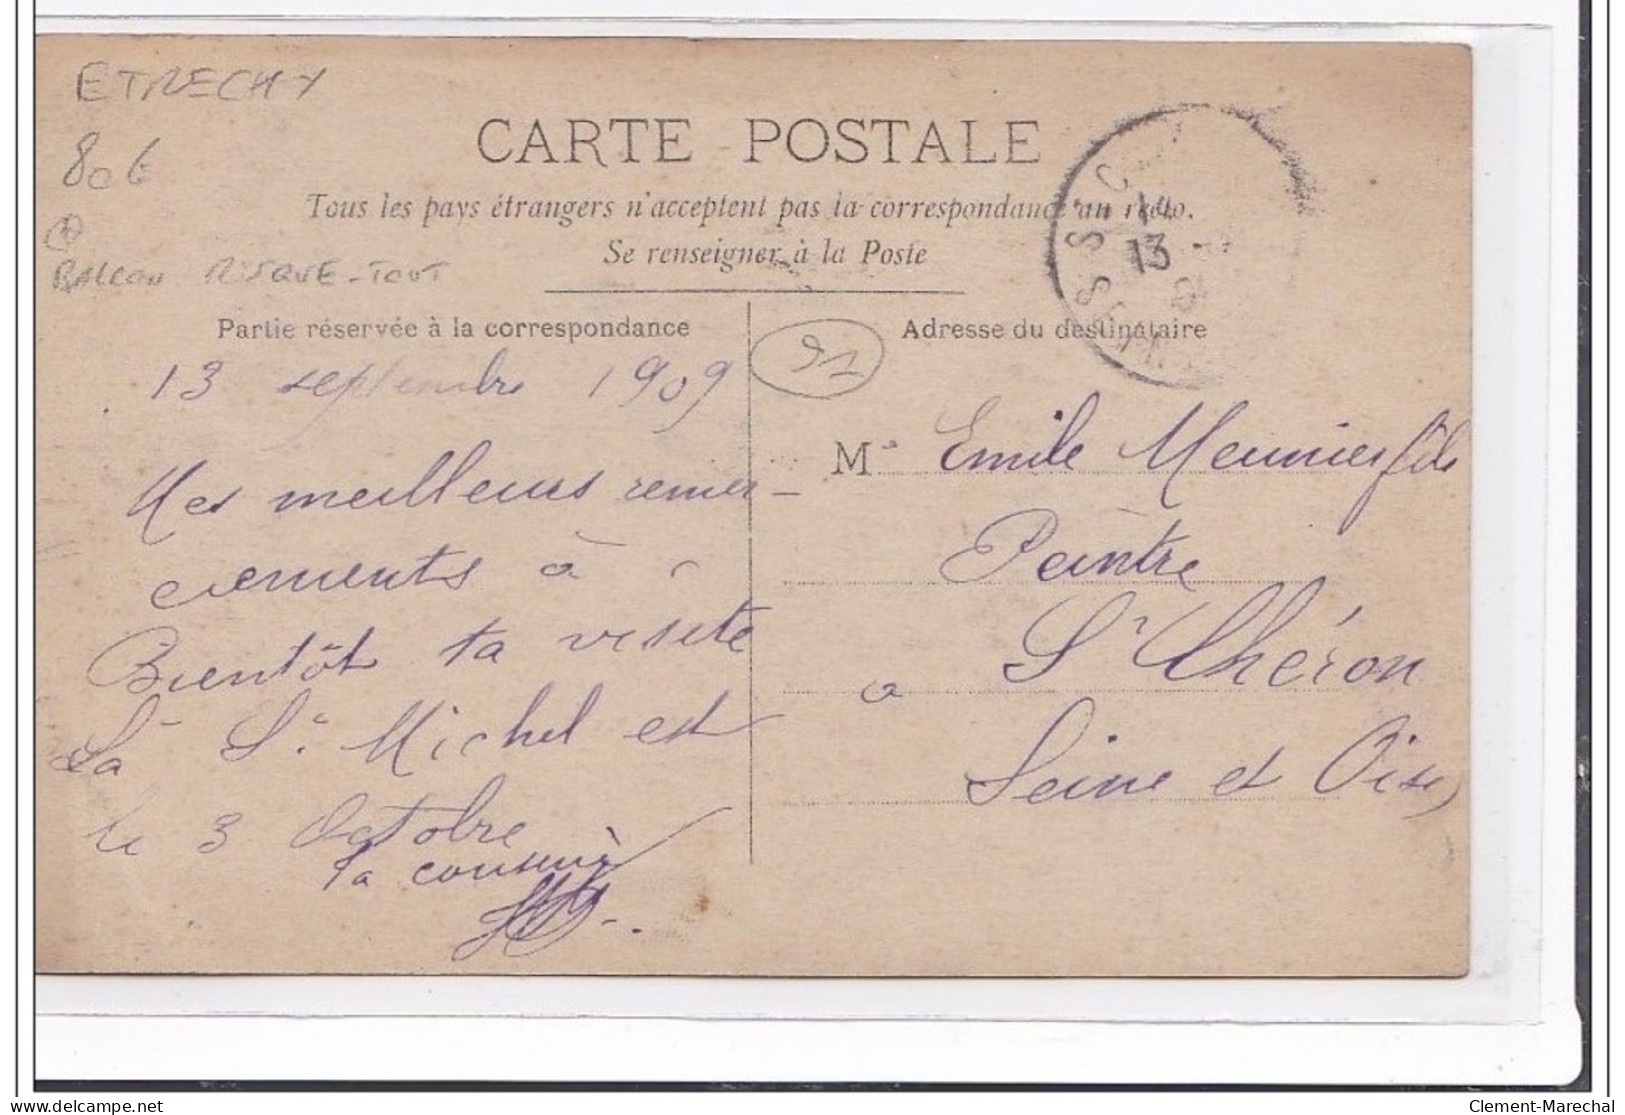 ETRECHY
80€
BALLON RISQUE-TOUT
CARTE POSTALE
Tous les pays étrangers n'acceptent pas la correspondance au recto.
Se renseigner à la Poste
Partie réservée à la correspondance
13 septembre 1909
Mes meilleurs remer-
ciements à
Bientôt ta visite
La St Michel est
le 3 Octobre
ta cousine
91
Adresse du destinataire
M Emile Meunier fils
Peintre
à St Chéron
Seine et Oise
13
Clement-Marechal